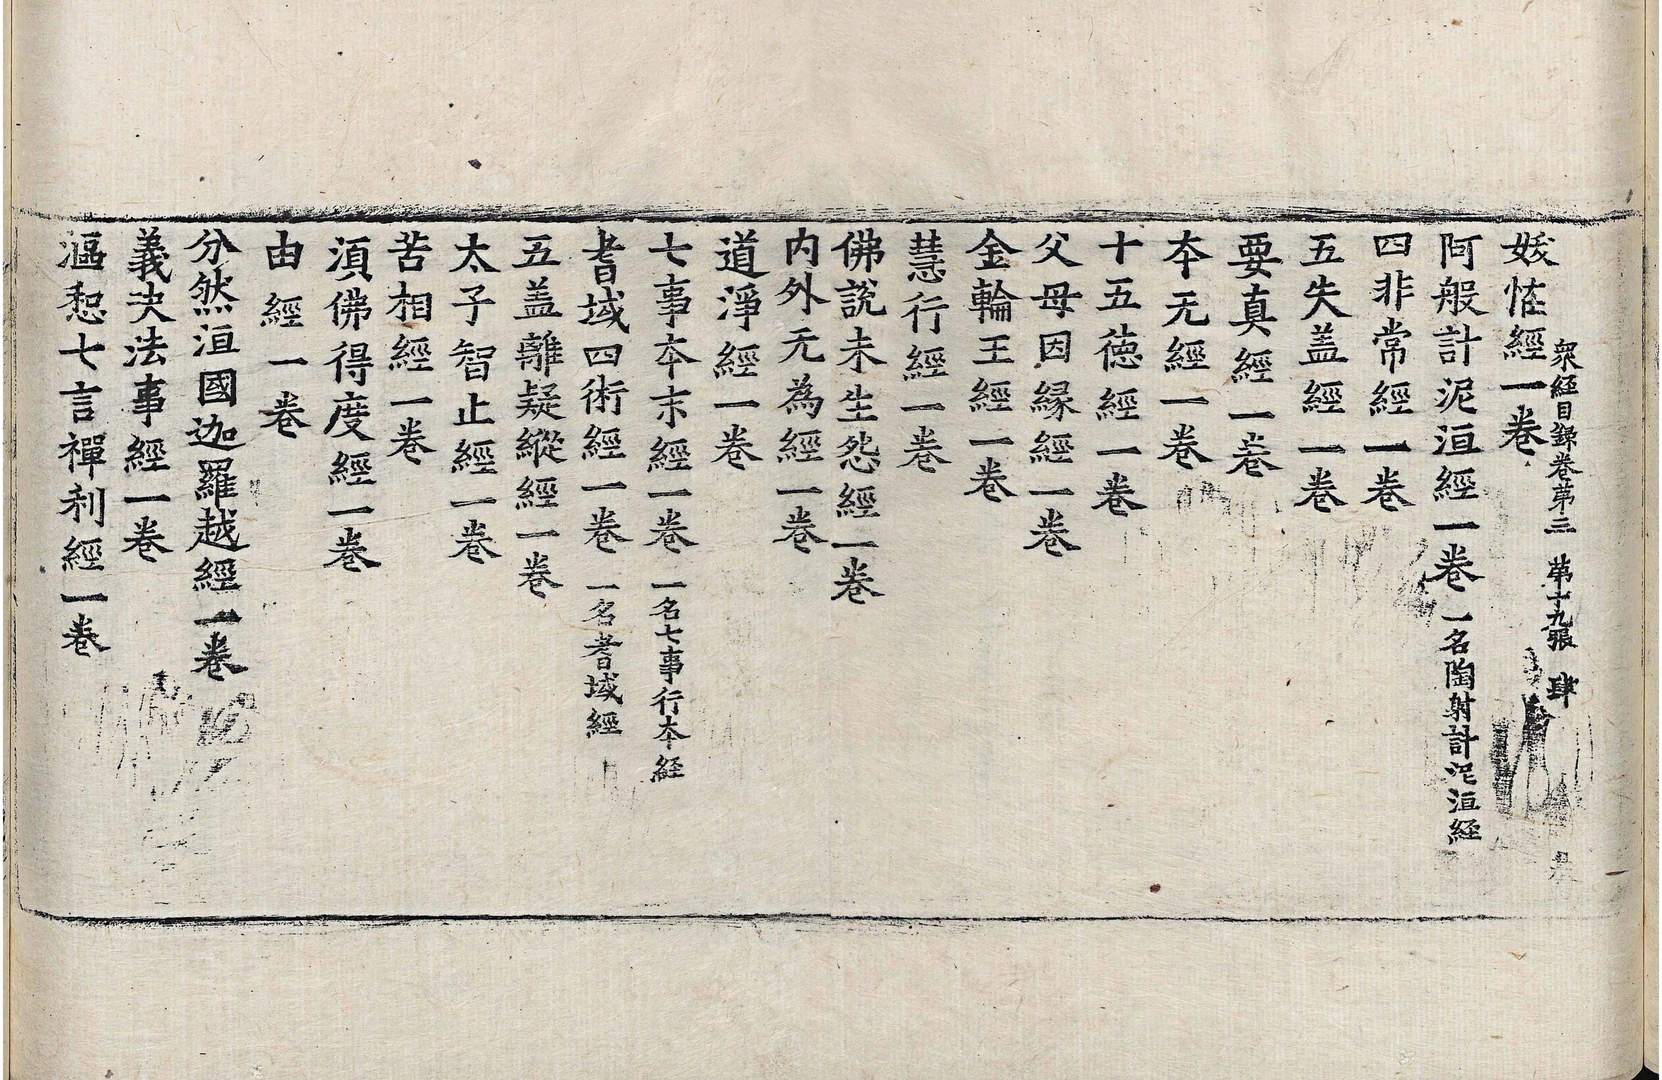 衆經目録卷第三　第十九張　肆
妭恠經一卷
阿般計泥洹經一卷 一名陶射計泥洹經
四非常經一卷
五失盖經一卷
要真經一卷
本无經一卷
十五德經一卷
父母因縁經一卷
金輪王經一卷
慧行經一卷
佛說未生怨經一卷
内外无為經一卷
道淨經一卷
七事本末經一卷 一名七事行本経
耆域四術經一卷 一名耆域經
五盖離疑縱經一卷
太子智止經一卷
苦相經一卷
湏佛得度經一卷
由經一卷
分然洹國迦羅越經一卷
義决法事經一卷
漚惒七言禪利經一卷